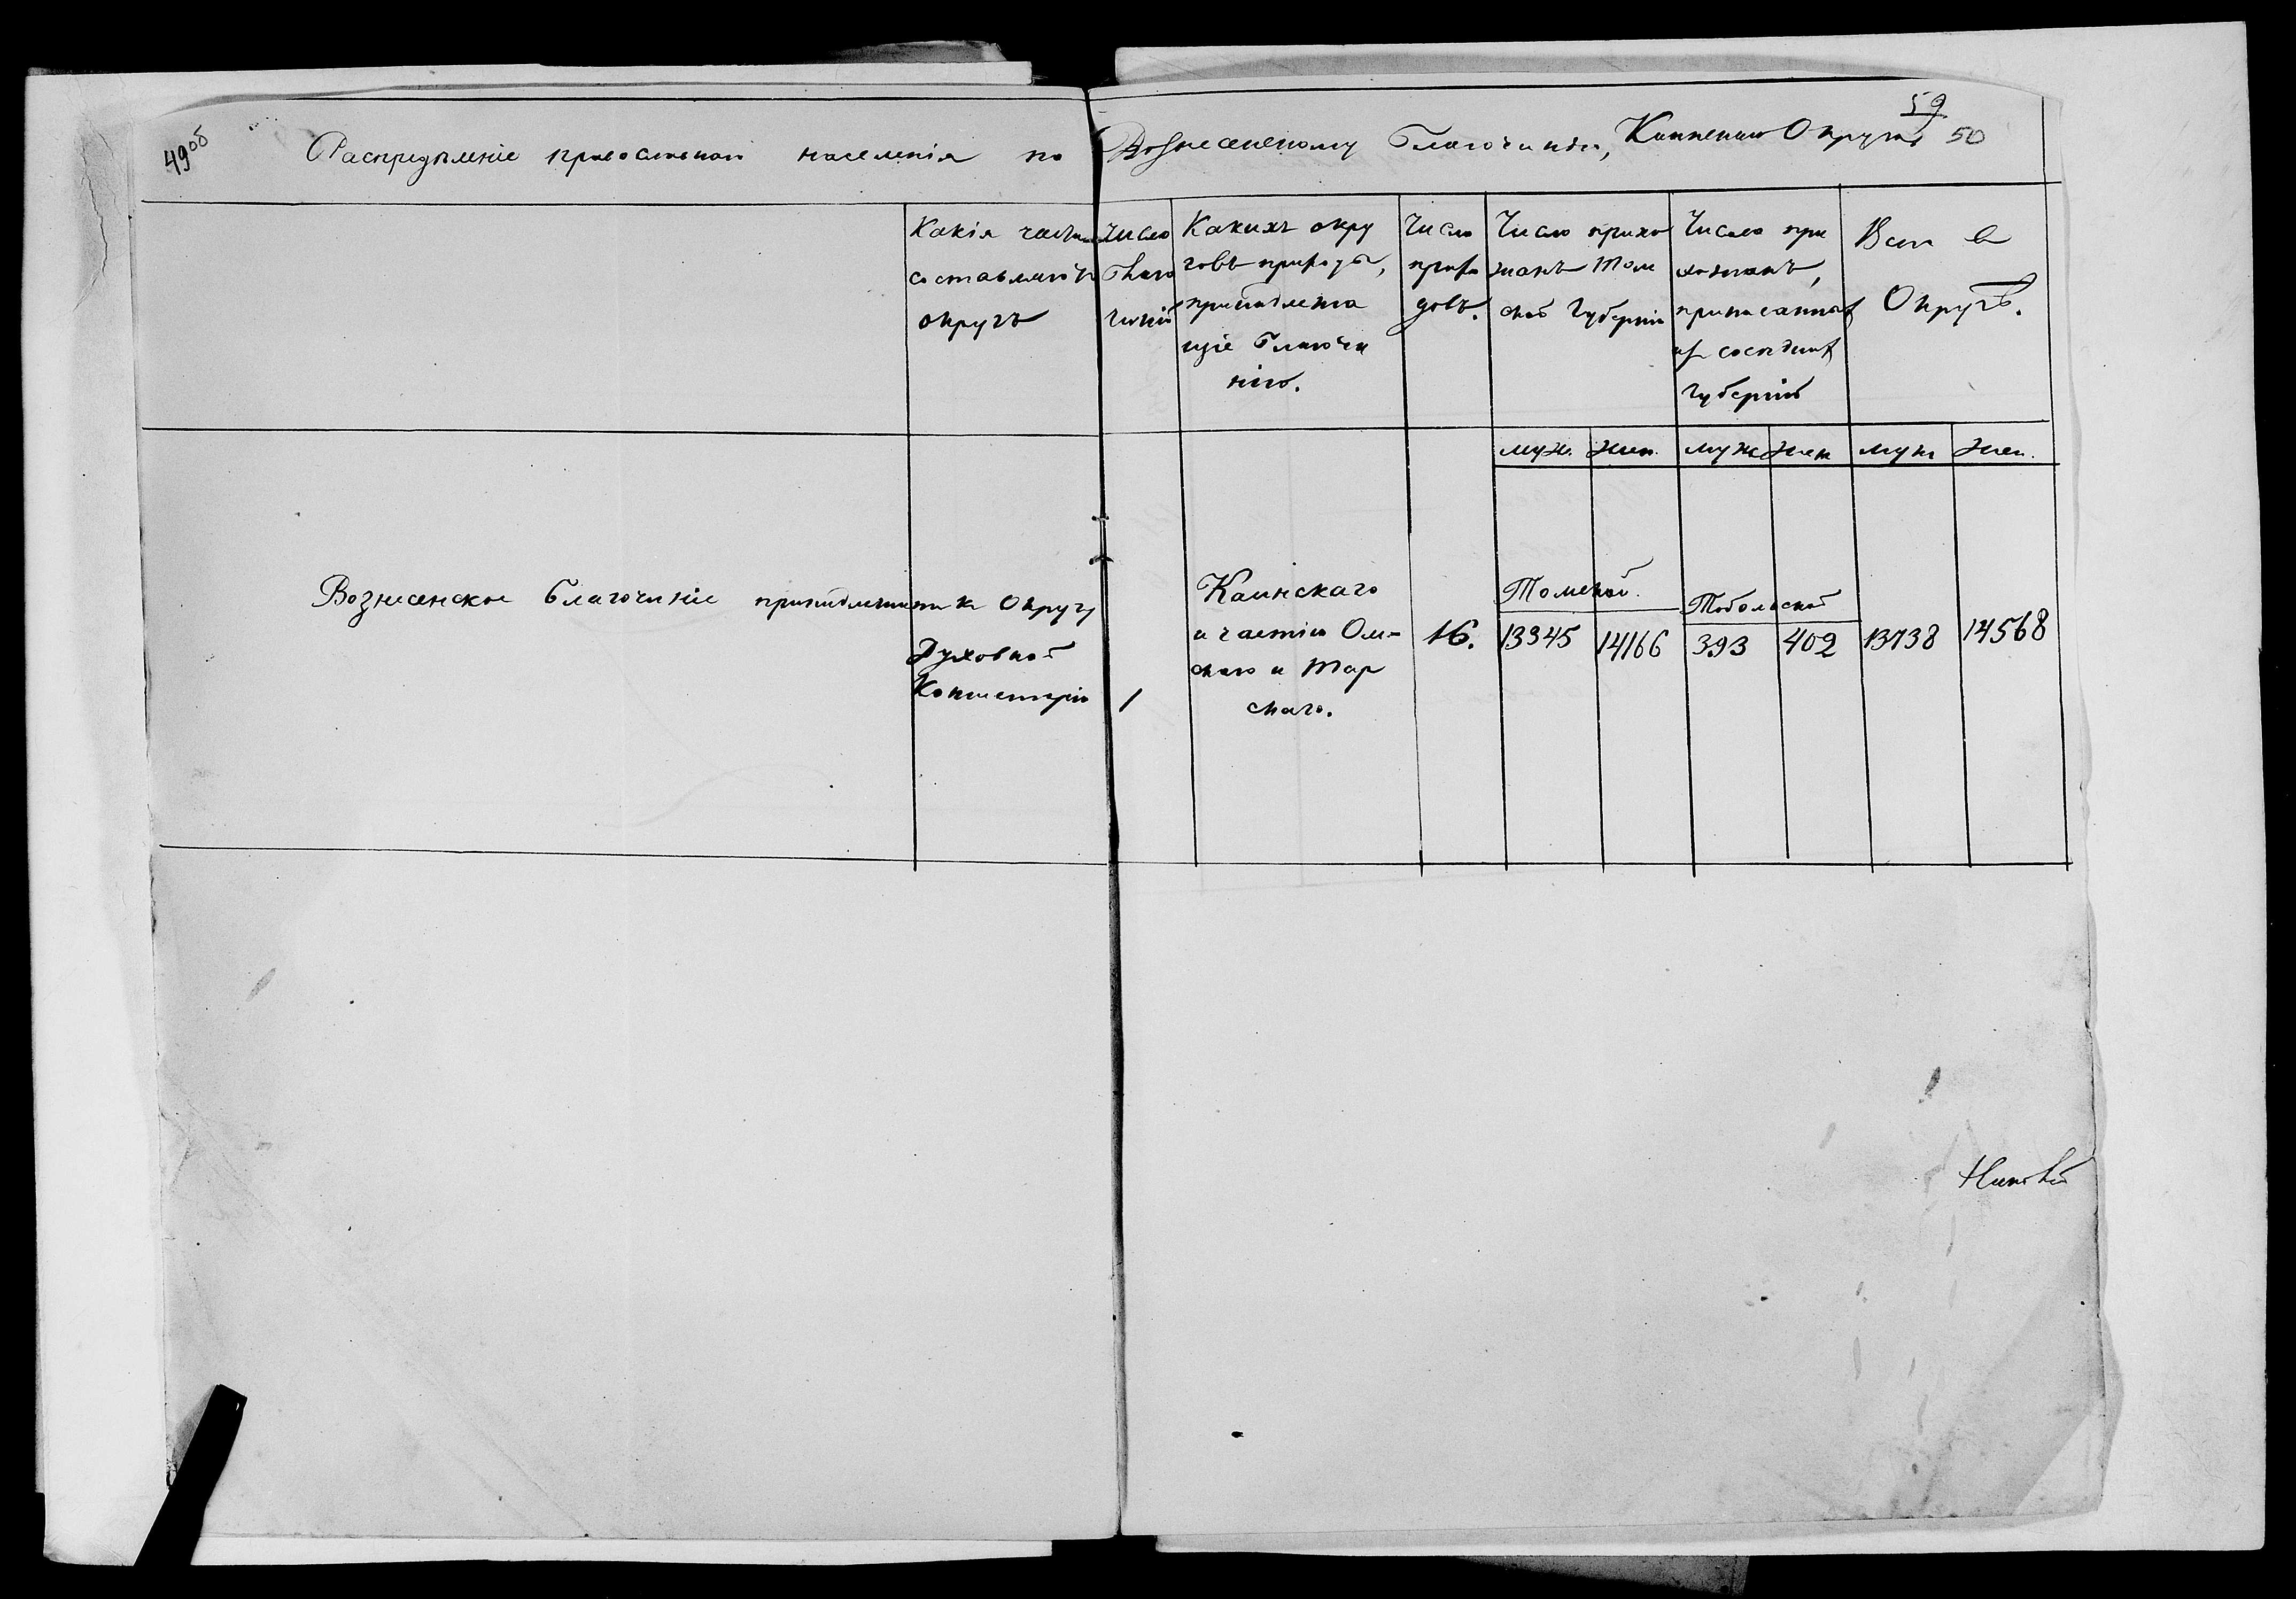 49об
59
50
Распредѣленіе православнаго населенія по Вознесенскому Благочинію, Каинскаго Округа
Какія части
составляютъ
округъ
Число
Благо
чиній
Какихъ окру
говъ приходы,
принадлежа
щіе Благочи
нію.
Число
прихо
довъ.
Число прихо
жанъ Том
ской Губерніи
Число при
хожанъ,
приписанныхъ
изъ сосѣднихъ
Губерній
Всего въ
Округѣ.
муж. жен. муж жен муж жен.
Вознесенское Благочиніе принадлежитъ къ Округу
Духовной
Консисторіи
1
Каинскаго
и частію Ом-
скаго и Тар
скаго.
16.
Томской.
13345 14166
Тобольской
393 402
13738 14568